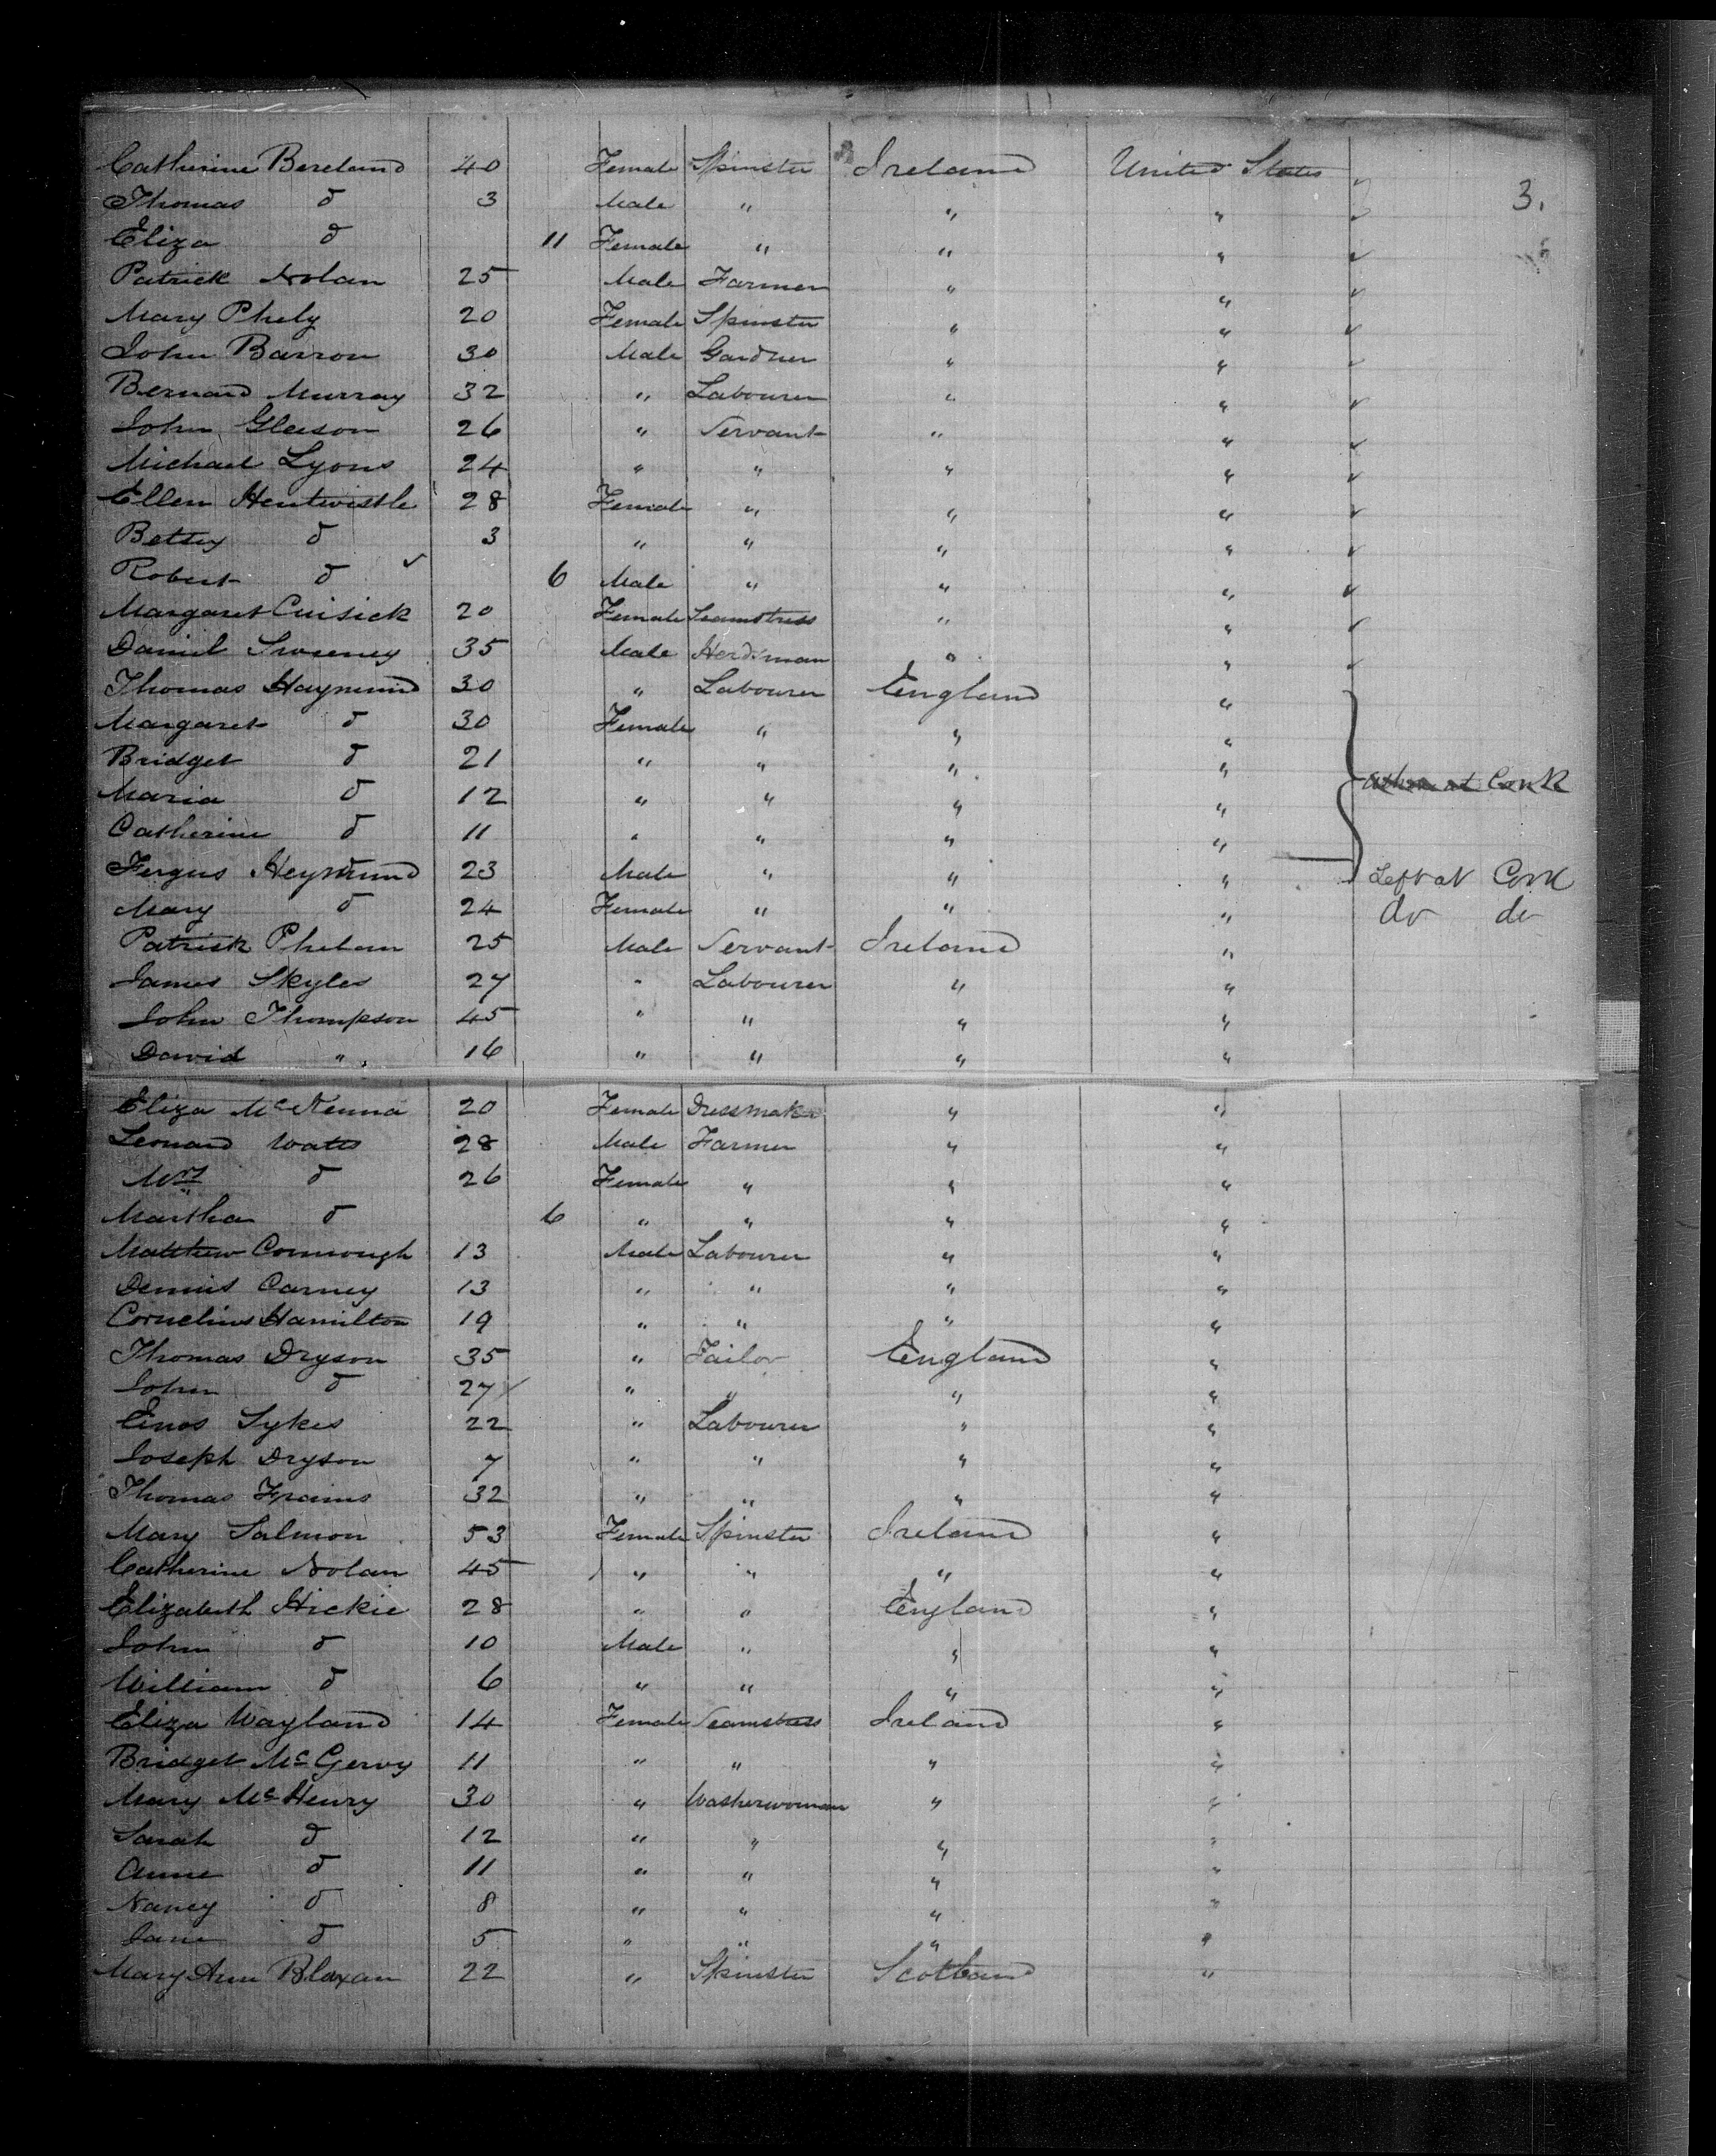 Catherine Bereland 40 Female Spinster Ireland United States
Thomas do 3 Male " " " 3.
Eliza do 11 Female " " "
Patrick Nolan 25 Male Farmer " "
Mary Phely 20 Female Spinster " "
John Barron 30 Male Gardner " "
Bernard Murray 32 " Labourer " "
John Gleeson 26 " Servant " "
Michael Lyons 24 " " " "
Ellen Hentwistle 28 Female " " "
Betsey do 3 " " " "
Robert do 6 Male " " "
Margaret Cuisick 20 Female Seamstress " "
Daniel Sweeney 35 Male Herdsman " "
Thomas 30 " Labourer England "
Margaret do 30 Female " " "
Bridget do 21 " " " "
Maria do 12 " " " " at Cork
Catherine do 11 " " " "
Fergus 23 Male " " " Left at Cork
Mary do 24 Female " " " do do
Patrick Phelan 25 Male Servant Ireland "
James Skyles 27 " Labourer " "
John Thompson 45 " " " "
David " 16 " " " "
Eliza McKenna 20 Female Dressmaker " "
Leonard Watts 28 Male Farmer " "
Mrs do 26 Female " " "
Martha do 6 " " " "
Matthew Connough 13 Male Labourer " "
Dennis Carney 13 " " " "
Cornelius Hamilton 19 " " " "
Thomas Dryson 35 " Tailor England "
John do 27 " " " "
Enos Sykes 22 " Labourer " "
Joseph Dryson 7 " " " "
Thomas Frains 32 " " " "
Mary Salmon 53 Female Spinster Ireland "
Catherine Nolan 45 " " " "
Elizabeth Hickie 28 " " England "
John do 10 Male " " "
William do 6 " " " "
Eliza Wayland 14 Female Seamstress Ireland "
Bridget McGervy 11 " " " "
Mary McHenry 30 " Washerwoman " "
Sarah do 12 " " " "
Anne do 11 " " " "
Nancy do 8 " " " "
Jane do 5 " " " "
Mary Ann Bloxan 22 " Spinster Scotland "